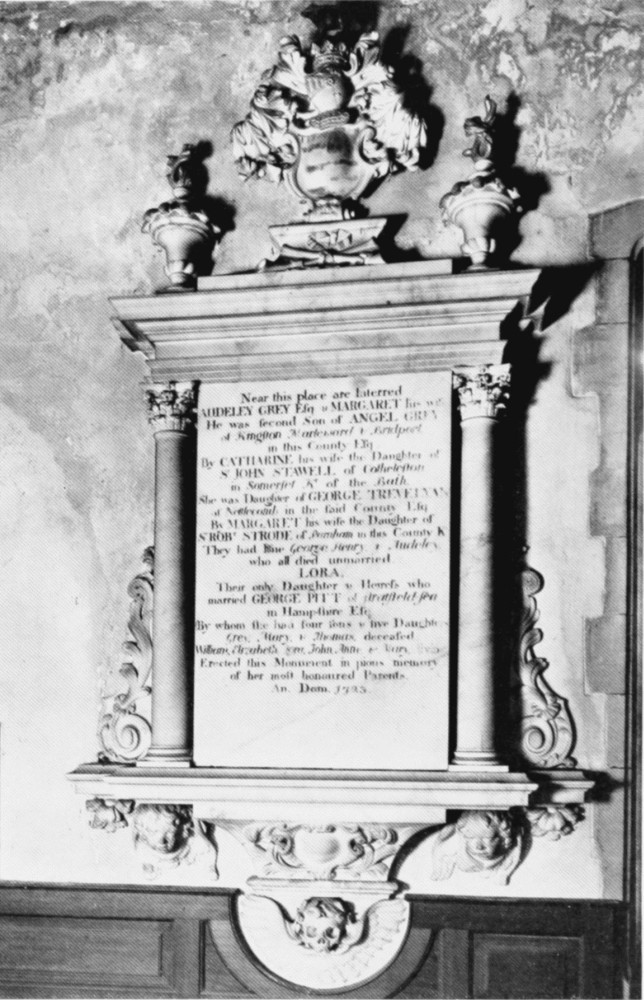 Near this place are Interred
AUDELEY GREY Esq & MARGARET his wife
He was second Son of ANGEL GREY
of Kingston Marleward & Bridport
in this County Esq
By CATHARINE his wife the Daughter of
Sr JOHN STAWELL of Cothelston
in Somerset Kt of the Bath.
She was Daughter of GEORGE TREVELYAN
of Nettlecomb in the said County Esq
By MARGARET his wife the Daughter of
Sr ROBt STRODE of Parnham in this County K
They had Issue George Henry & Audeley
who all died unmarried
LORA,
Their only Daughter & Heiress who
married GEORGE PITT of Stratfield sea
in Hampshire Esq
By whom she had four sons & five Daughters
Grey, Mary, & Thomas, deceased
William, Elizabeth, Lora, John, Anne & Mary,
Erected this Monument in pious memory
of her most honoured Parents.
An. Dom. 1723.